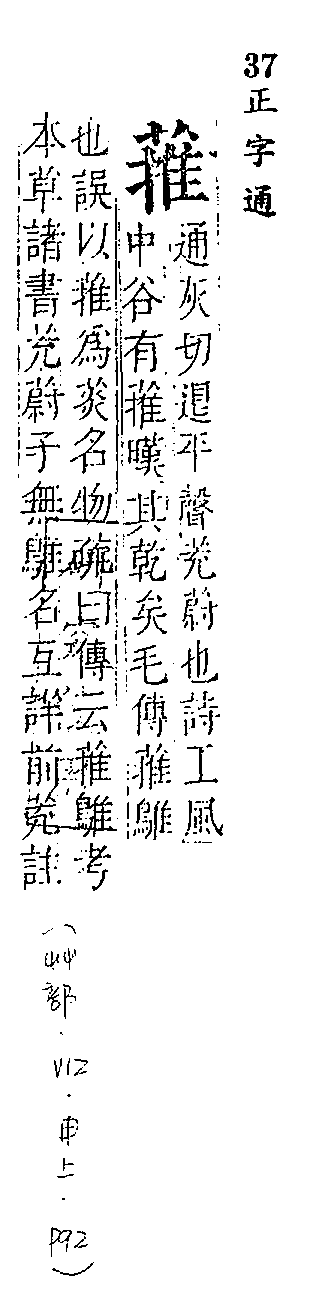 37正字通
蓷
通灰切退平聲茺蔚也詩王風
中谷有蓷暵其乾矣毛傳蓷鵻
也誤以蓷爲菼名物疏曰傳云蓷鵻考
本草諸書茺蔚子無鵻名互詳前註
(艸部.V12.申上.P92)